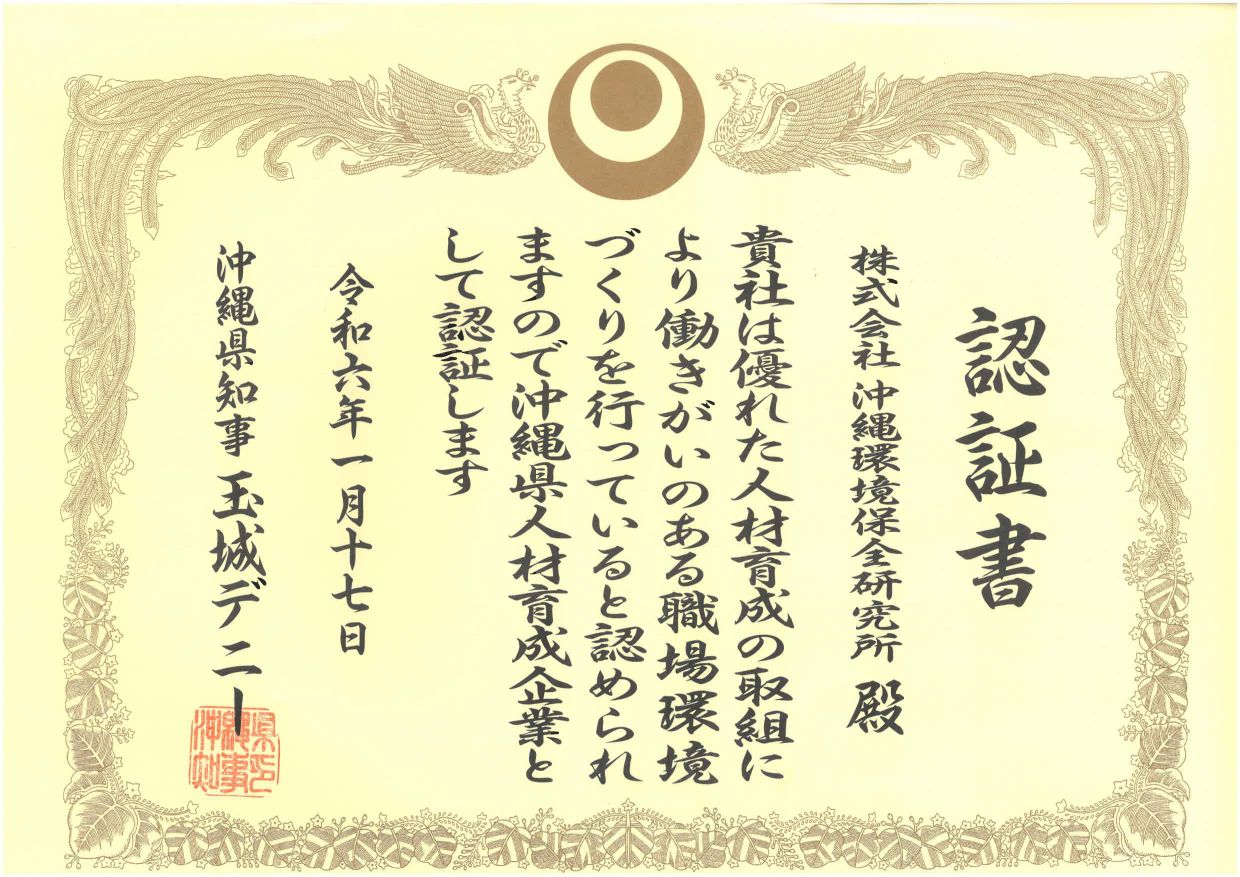 認証書
株式会社 沖縄環境保全研究所 殿
貴社は優れた人材育成の取組に
より働きがいのある職場環境
づくりを行っていると認められ
ますので沖縄県人材育成企業と
して認証します
令和六年一月十七日
沖縄県知事 玉城デニー
沖縄県知事之印